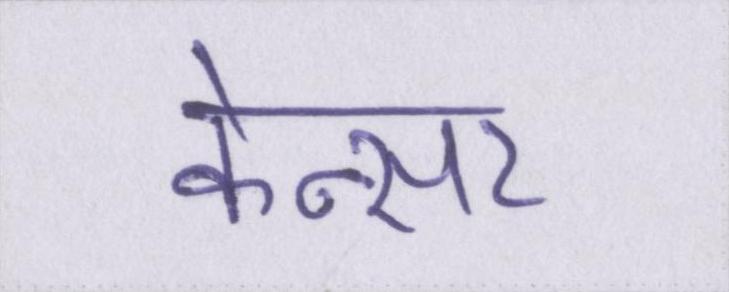 केन्सर